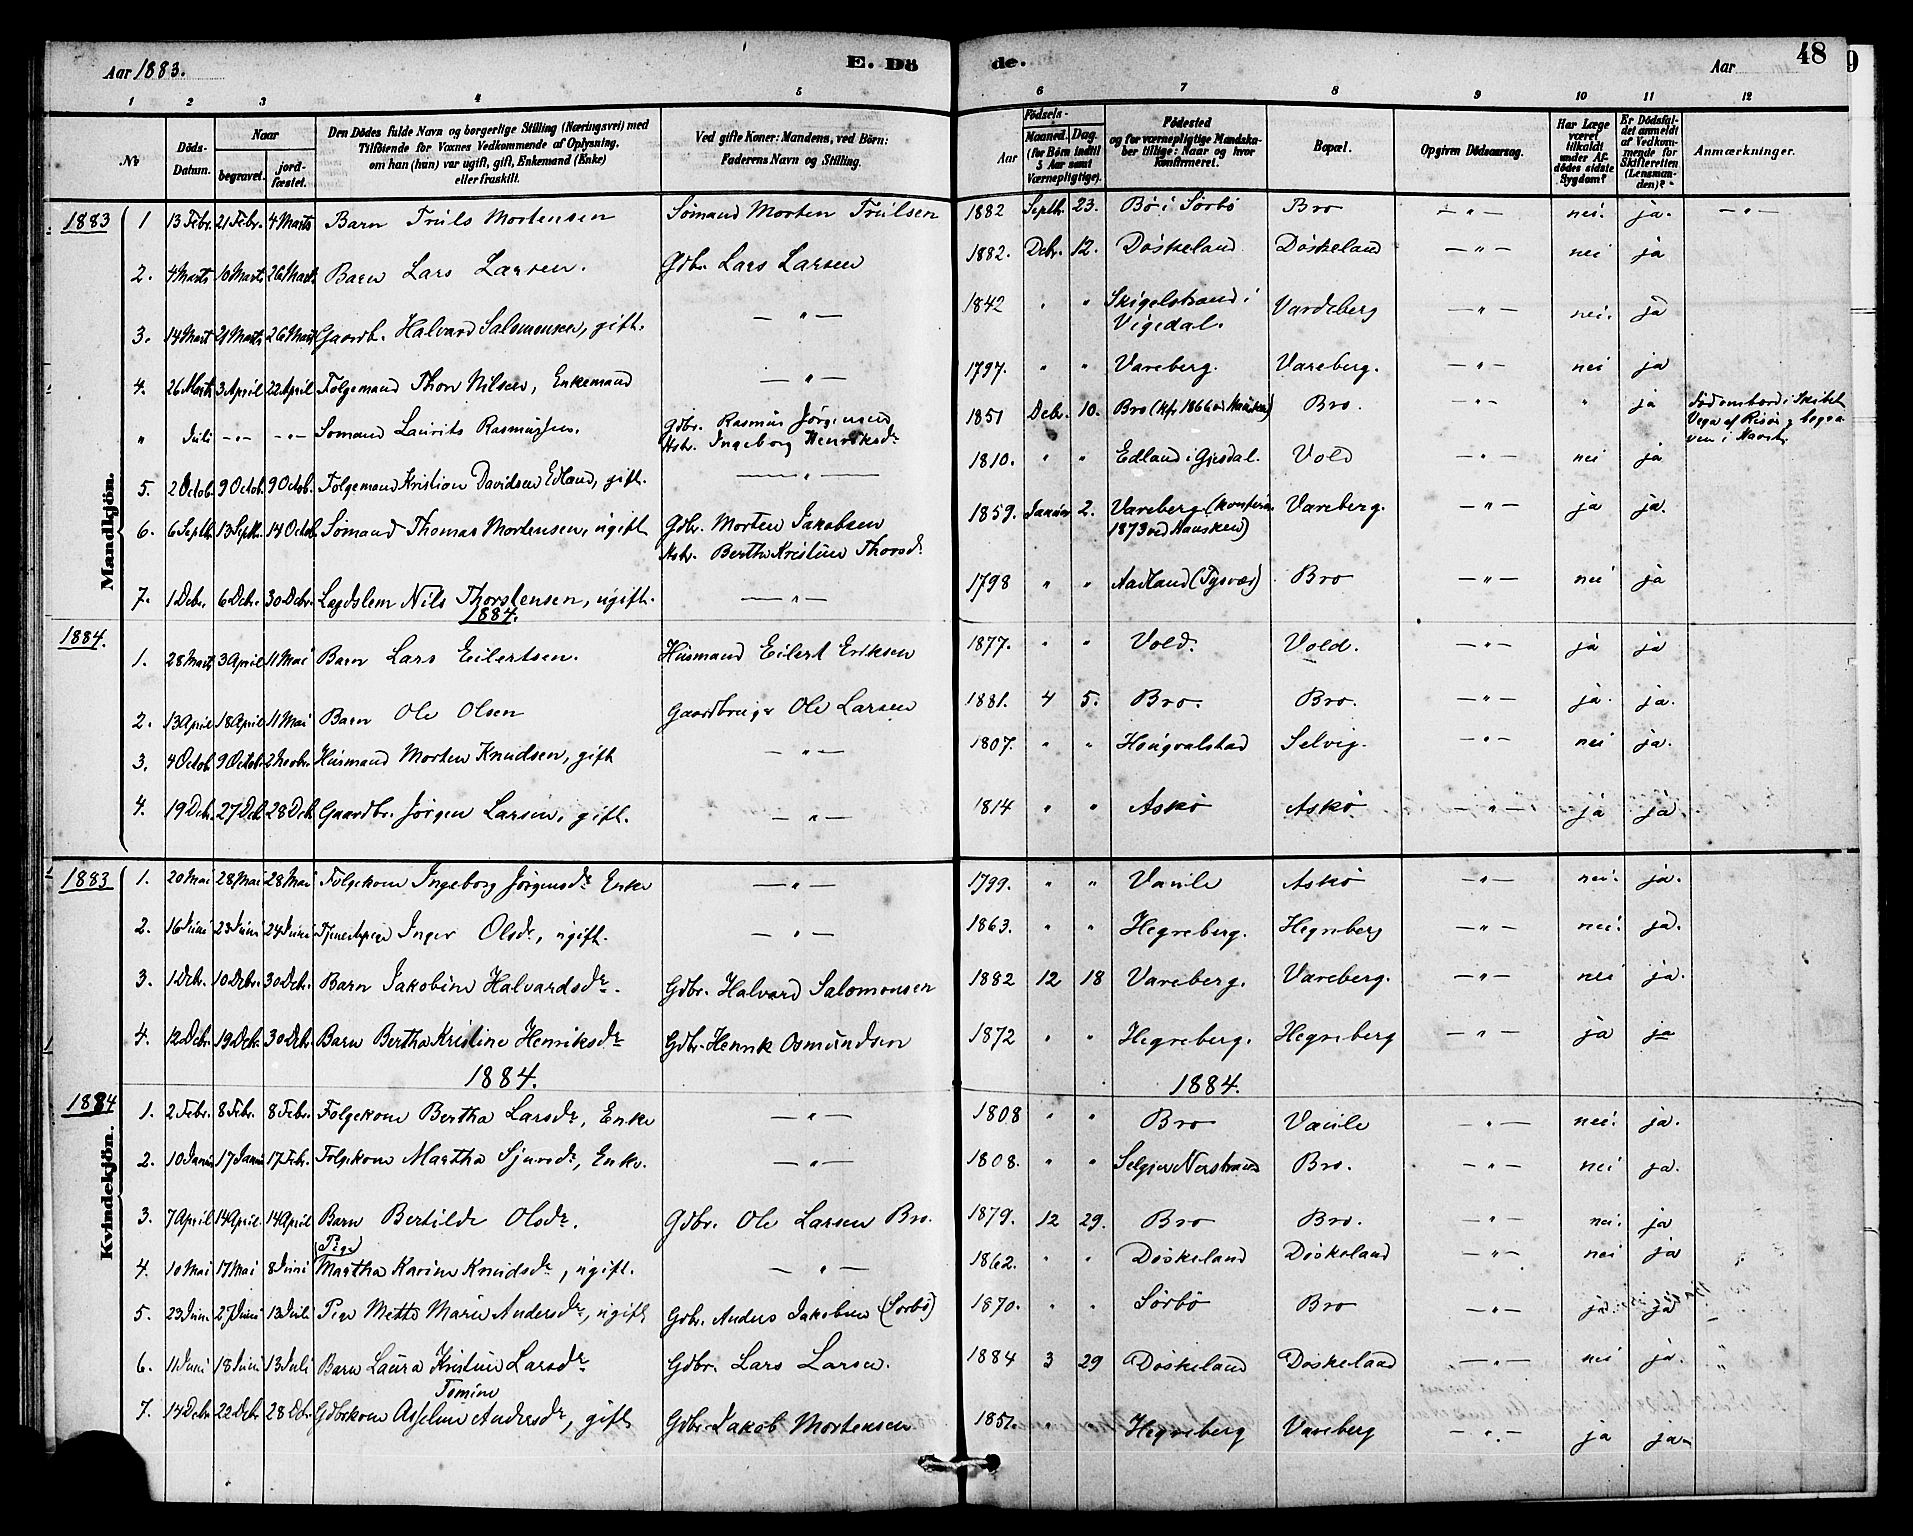 Aar 1883. E. Dö de. Aar 48
1 2 3 4 5 6 7 8 9 10 11 12
No Döds-Datum. Naar begravet. jordfæstet. Den Dödes fulde Navn og borgerlige Stilling (Næringsvei) med Tilföiende for Voxnes Vedkommende af Oplysning, om han (hun) var ugift, gift, Enkemand (Enke) eller fraskilt. Ved gifte Koner: Mandens, ved Börn: Faderens Navn og Stilling. Födsels- Aar Maaned. Dag. (for Börn indtil 5 Aar samt Værnepligtige). Födested og for værnepligtige Mandskaber tillige: Naar og hvor Konfirmeret. Bopæl. Opgiven Dödsaarsag. Har Læge været tilkaldt under Afdödes sidste Sygdom? Er Dödsfaldet anmeldt af Vedkommende for Skifteretten (Lensmanden)? Anmærkninger.
Mandkjön.
1883 1 13 Febr. 21 Febr. 4 Marts Barn Truls Mortensen Sömand Morten Trulsen 1882 Septb. 23. Bö i Sörbö Bro — " — nei. ja. — " —
2. 4 Marts 10 Marts 26 Marts Barn Lars Larsen. Gdbr. Lars Larsen 1882. Debr. 12. Döskeland Döskeland — " — nei ja
3. 14 Mart 21 Marts 26 Marts Gaardb. Halvard Salomonsen, gift. — " — 1842 " " Skigelstrand i Vigedal. Vardeberg — " — nei. ja
4. 26 Marts 3 April 22 April Folgemand Thor Nilsen, Enkemand — " — 1797. " " Vareberg. Vareberg. — " — nei ja
" Juli -"- -"- Sömand Laurits Rasmussen. Gdbr. Rasmus Jörgensen Hstr. Ingeborg Henriksdr 1851 Debr. 10. Bro (kfr 1866 ved Hausken) Bro. — " — " ja
5. 2 Octob. 9 Octob. 9 Octob. Folgemand Kristian Davidsen Edland, gift. — " — 1810. " " Edland i Gjesdal. Vold — " — nei ja
6. 6 Septb. 13 Septb. 14 Octob. Sömand Thomas Mortensen, ugift Gdbr. Morten Jakobsen Hstr. Bertha Kristine Thorsdr 1859. Januar 2. Vareberg (konfirm. 1873 ved Hausken) Vareberg. — " — ja ja.
7. 1 Debr. 6 Debr. 30 Debr. Lægdslem Nils Thorstensen, ugift. — " — 1798 " " Aadland (Tysvær) Bro — " — nei ja
1884.
1884. 1. 28 Mart 3 April 11 Mai Barn Lars Eilertsen. Husmand Eilert Eriksen 1877. " " Vold. Vold. — " — ja ja
2. 13 April 18 April 11 Mai Barn Ole Olsen Gaardbruger Ole Larsen 1881. 4 5. Bro. Bro. — " — ja. ja.
3. 4 Octob. 9 Octob. 2 Novbr. Husmand Morten Knudsen, gift — " — 1807. " " Selvig. — " — nei ja.
4. 19 Debr. 27 Deb. 28 Deb. Gaardbr. Jörgen Larsen, gift. — " — 1814 " " Askö Askö — " — ja ja
Kvindekjön.
1883 1. 20 Mai 28 Mai 28 Mai Folgekone Ingeborg Jörgensdr Enke — " — 1799. " " Vaule Askö — " — nei. ja.
2. 16 Juni 23 Juni 24 Juni Tjenestepige Inger Olsdr, ugift. — " — 1863. " " Hegreberg. Hegreberg — " — nei. ja.
3. 1 Debr. 10 Debr. 30 Debr. Barn Jakobine Halvardsdr. Gdbr. Halvard Salomonsen 1882 12 18 Vareberg. Vareberg. — " — nei ja.
4. 12 Debr. 19 Debr. 30 Debr. Barn Bertha Kristine Henriksdr Gdbr. Henrik Osmundsen 1872 " " Hegreberg. Hegreberg — " — ja ja
1884. 1884.
1884 1. 2 Febr. 8 Febr. 8 Febr. Folgekone Bertha Larsdr, Enke — " — 1808 " " Bro Vaule — " — nei. ja.
2. 10 Januar 17 Januar 17 Febr. Folgekone Martha Sjursdr, Enke. — " — 1808. " " Nerstrand Bro. — " — nei ja.
3. 7 April 14 April 14 April Barn Bertilde Olsdr. Gdbr. Ole Larsen Bro. 1879. 12 29. Bro Bro. — " — nei. ja
4. 10 Mai 17 Mai 8 Juni Pige Martha Karine Knudsdr, ugift. — " — 1862. " " Döskeland Döskeland — " — nei ja
5. 23 Juni 27 Juni 13 Juli Pige Mette Marie Andersdr, ugift Gdbr. Anders Jakobsen (Sörbö) 1870. " " Sörbö Bro — " — ja ja
6. 11 Juni 18 Juni 13 Juli Barn Laura Kristine Larsdr Gdbr. Lars Larsen. 1884 3 29 Döskeland Döskeland — " — nei ja.
Tomine
7. 14 Debr 22 Debr 28 Dbr. Gdbrkone Asseline Andersdr, gift Gdbr. Jakob Mortensen 1851. " Hegreberg Vareberg — " — ja ja